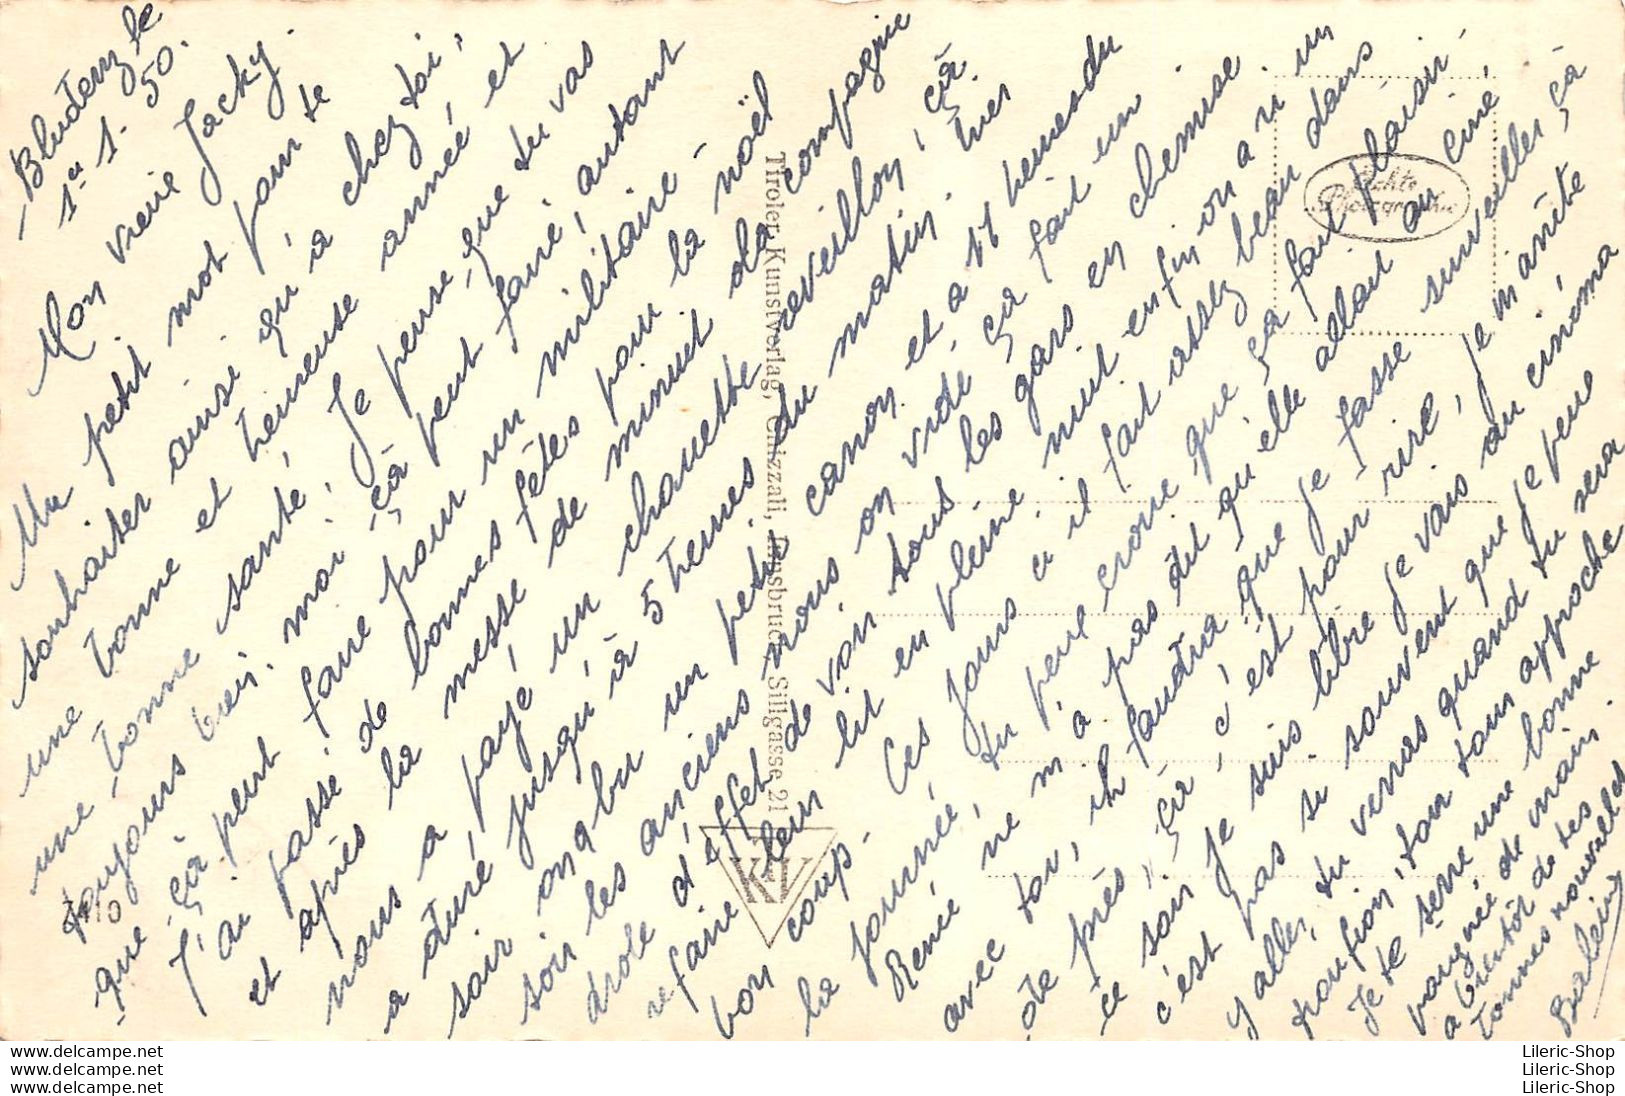 Bludenz le
1er 1. 50.
Mon vieux Jacky.
Un petit mot pour te
souhaiter ainsi qu'à chez toi,
une bonne et heureuse année et
une bonne santé, Je pense que tu vas
toujours bien, moi çà peut faire, autant
que çà peut faire pour un militaire -
J'ai passé de bonnes fêtes pour la noël
et après la messe de minuit la compagnie
nous a payé un chouette reveillon, çà
a duré jusqu'à 5 heures du matin. hier
soir on a bu un petit canon et a 11 heures du
soir les anciens nous on vidé, ça fait un
drole d'effet de voir tous les gars en chemise
refaire leur lit en pleine nuit enfin on a ri un
bon coup - Ces jours ci il fait assez beau dans
la journée, tu peux croire que ça fait plaisir -
Renée ne m'a pas dit qu'elle allait au ciné,
avec toi, il faudra que je fasse surveiller çà
de près, çà c'est pour rire, je m'arrête
ce soir je suis libre je vais au cinéma
c'est pas si souvent que je peux
y aller, tu verras quand tu sera
troufion, ton tour approche
Je te serre une bonne
poignée de main.
a bientôt de tes
bonnes nouvelles
Tiroler Kunstverlag, Chizzali, Innsbruck, Sillgasse 21
Echte
Photographie
KV
Lileric-Shop.net
Lileric-Shop.net
Lileric-Shop.net
Lileric-Shop
Lileric-Shop
Lileric-Shop